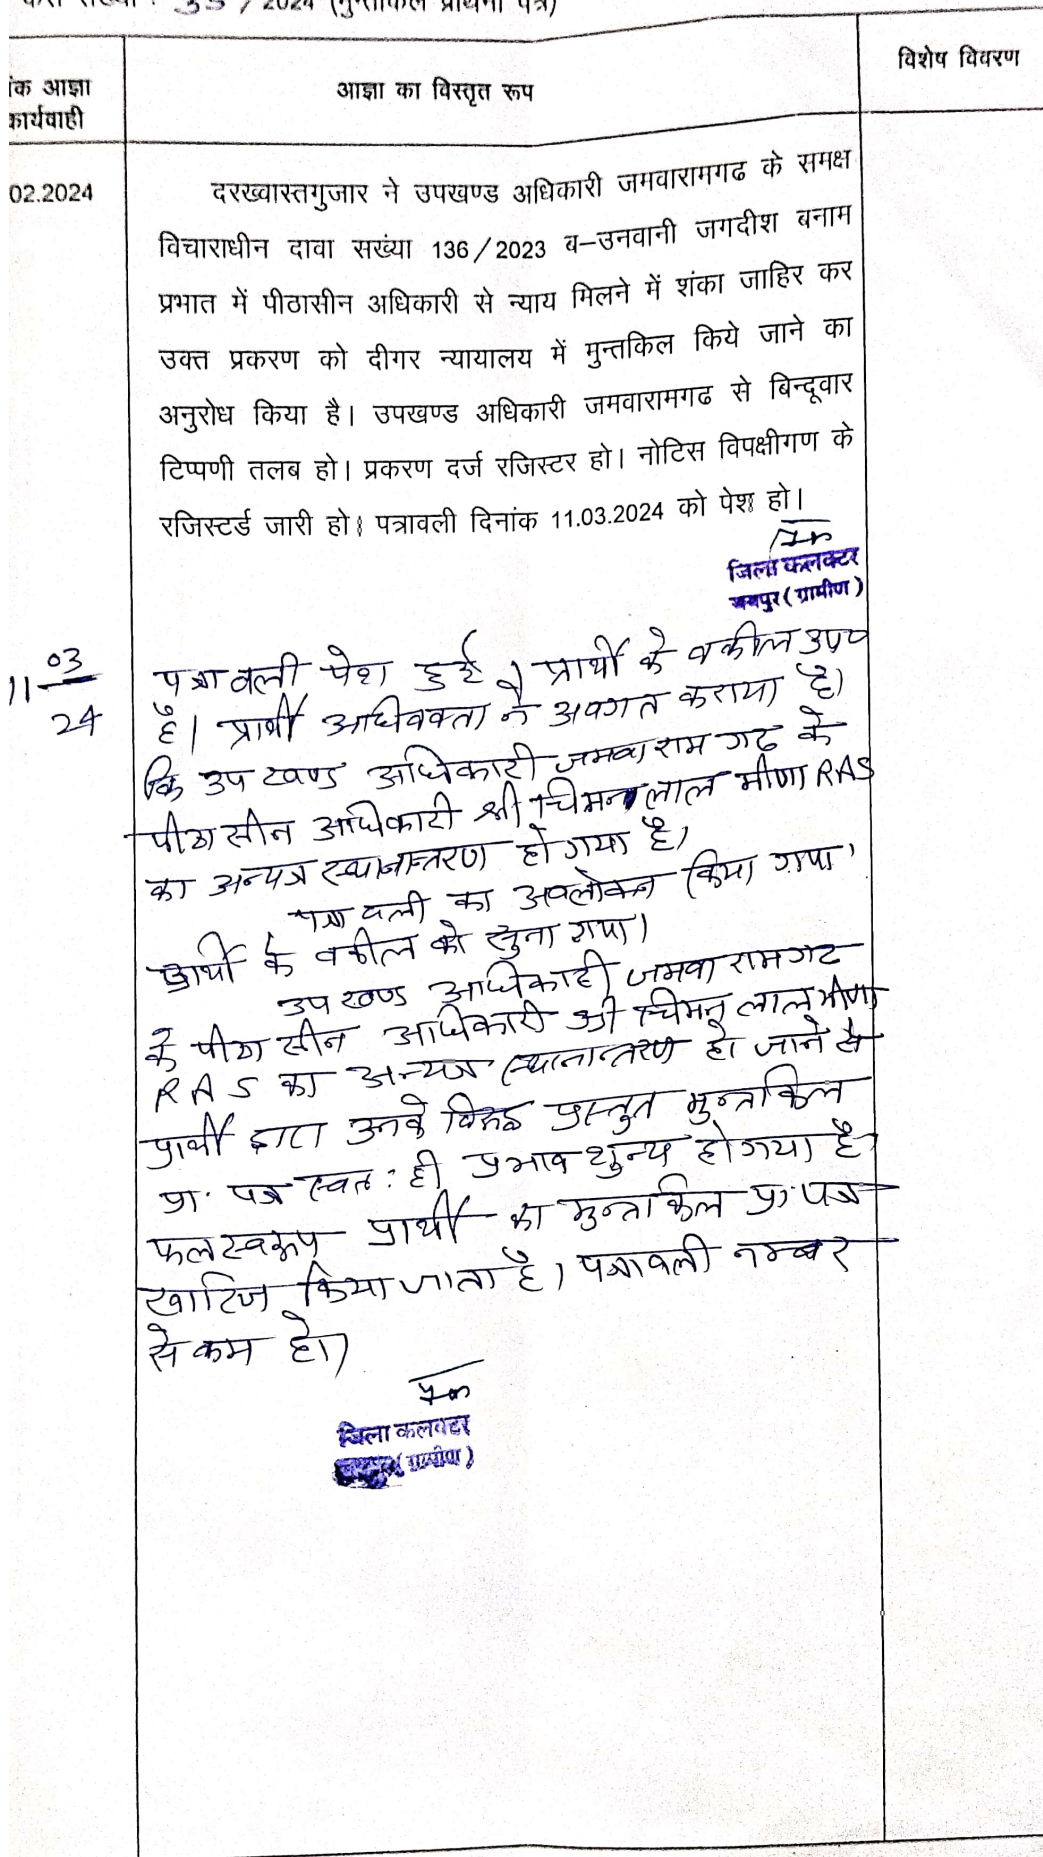 / 2024 (मुन्तकिल प्रार्थना पत्र)
विशेष विवरण
आज्ञा का विस्तृत रूप
ंक आज्ञा
कार्यवाही
02.2024
दरख्वास्तगुजार ने उपखण्ड अधिकारी जमवारामगढ के समक्ष
विचाराधीन दावा सख्ंया 136/2023 ब–उनवानी जगदीश बनाम
प्रभात में पीठासीन अधिकारी से न्याय मिलने में शंका जाहिर कर
उक्त प्रकरण को दीगर न्यायालय में मुन्तकिल किये जाने का
अनुरोध किया है। उपखण्ड अधिकारी जमवारामगढ से बिन्दूवार
टिप्पणी तलब हो। प्रकरण दर्ज रजिस्टर हो। नोटिस विपक्षीगण के
रजिस्टर्ड जारी हो। पत्रावली दिनांक 11.03.2024 को पेश हो।
जिला कलक्टर
जयपुर (ग्रामीण)
11 03
24
पत्रावली पेश हुई। प्रार्थी के वकील उप०
है। प्रार्थी अधिवक्ता ने अवगत कराया है।
कि उपखण्ड अधिकारी जमवारामगढ के
पीठासीन अधिकारी श्री चिमनलाल मीणा RAS
का अन्यत्र स्थानान्तरण हो गया है।
पत्रावली का अवलोकन किया गया।
प्रार्थी के वकील को सुना गया।
उपखण्ड अधिकारी जमवारामगढ
के पीठासीन अधिकारी श्री चिमनलाल मीणा
RAS का अन्यत्र स्थानान्तरण हो जाने से
प्रार्थी द्वारा उनके विरूद्ध प्रस्तुत मुन्तकिल
प्रा. पत्र स्वत: ही प्रभाव शुन्य हो गया है।
फलस्वरूप प्रार्थी का मुन्तकिल प्रा. पत्र
खारिज किया जाता है। पत्रावली नम्बर
से कम हो।
जिला कलक्टर
(ग्रामीण)